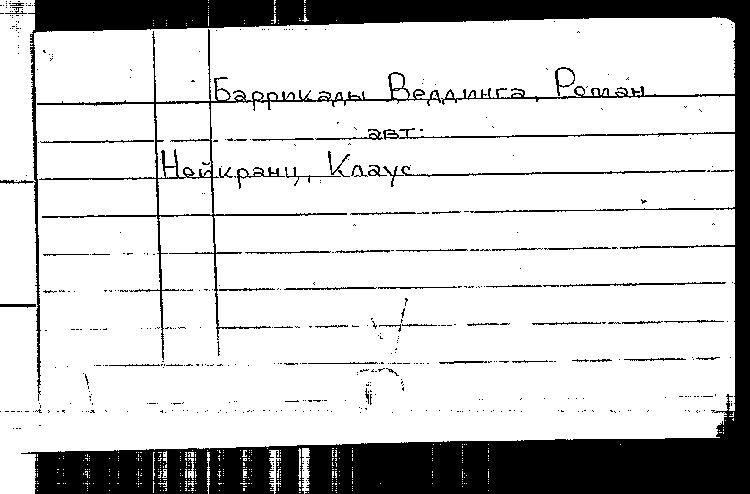 Баррикады Веддинга. Роман
авт:
Нейкранц, Клаус